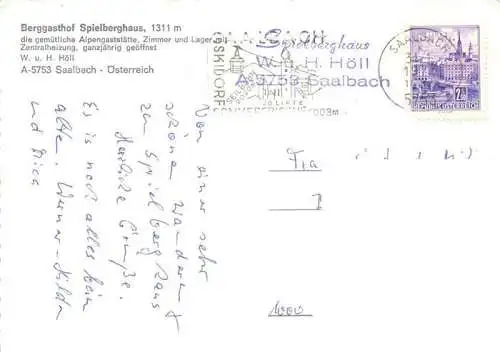 Berggasthof Spielberghaus, 1311 m
die gemütliche Alpengaststätte, Zimmer und Lager
Zentralheizung, ganzjährig geöffnet
W. u. H. Höll
A-5753 Saalbach - Österreich
Spielberghaus
W. H. Höll
A-5753 Saalbach
SKIDORF
20 LIFTE
SAALBACH
REPUBLIK ÖSTERREICH
Von einer sehr
schönen Wanderung
zum Spielberghaus
Herzliche Grüße.
Es ist noch alles beim
alten. Werner - Hilde
und